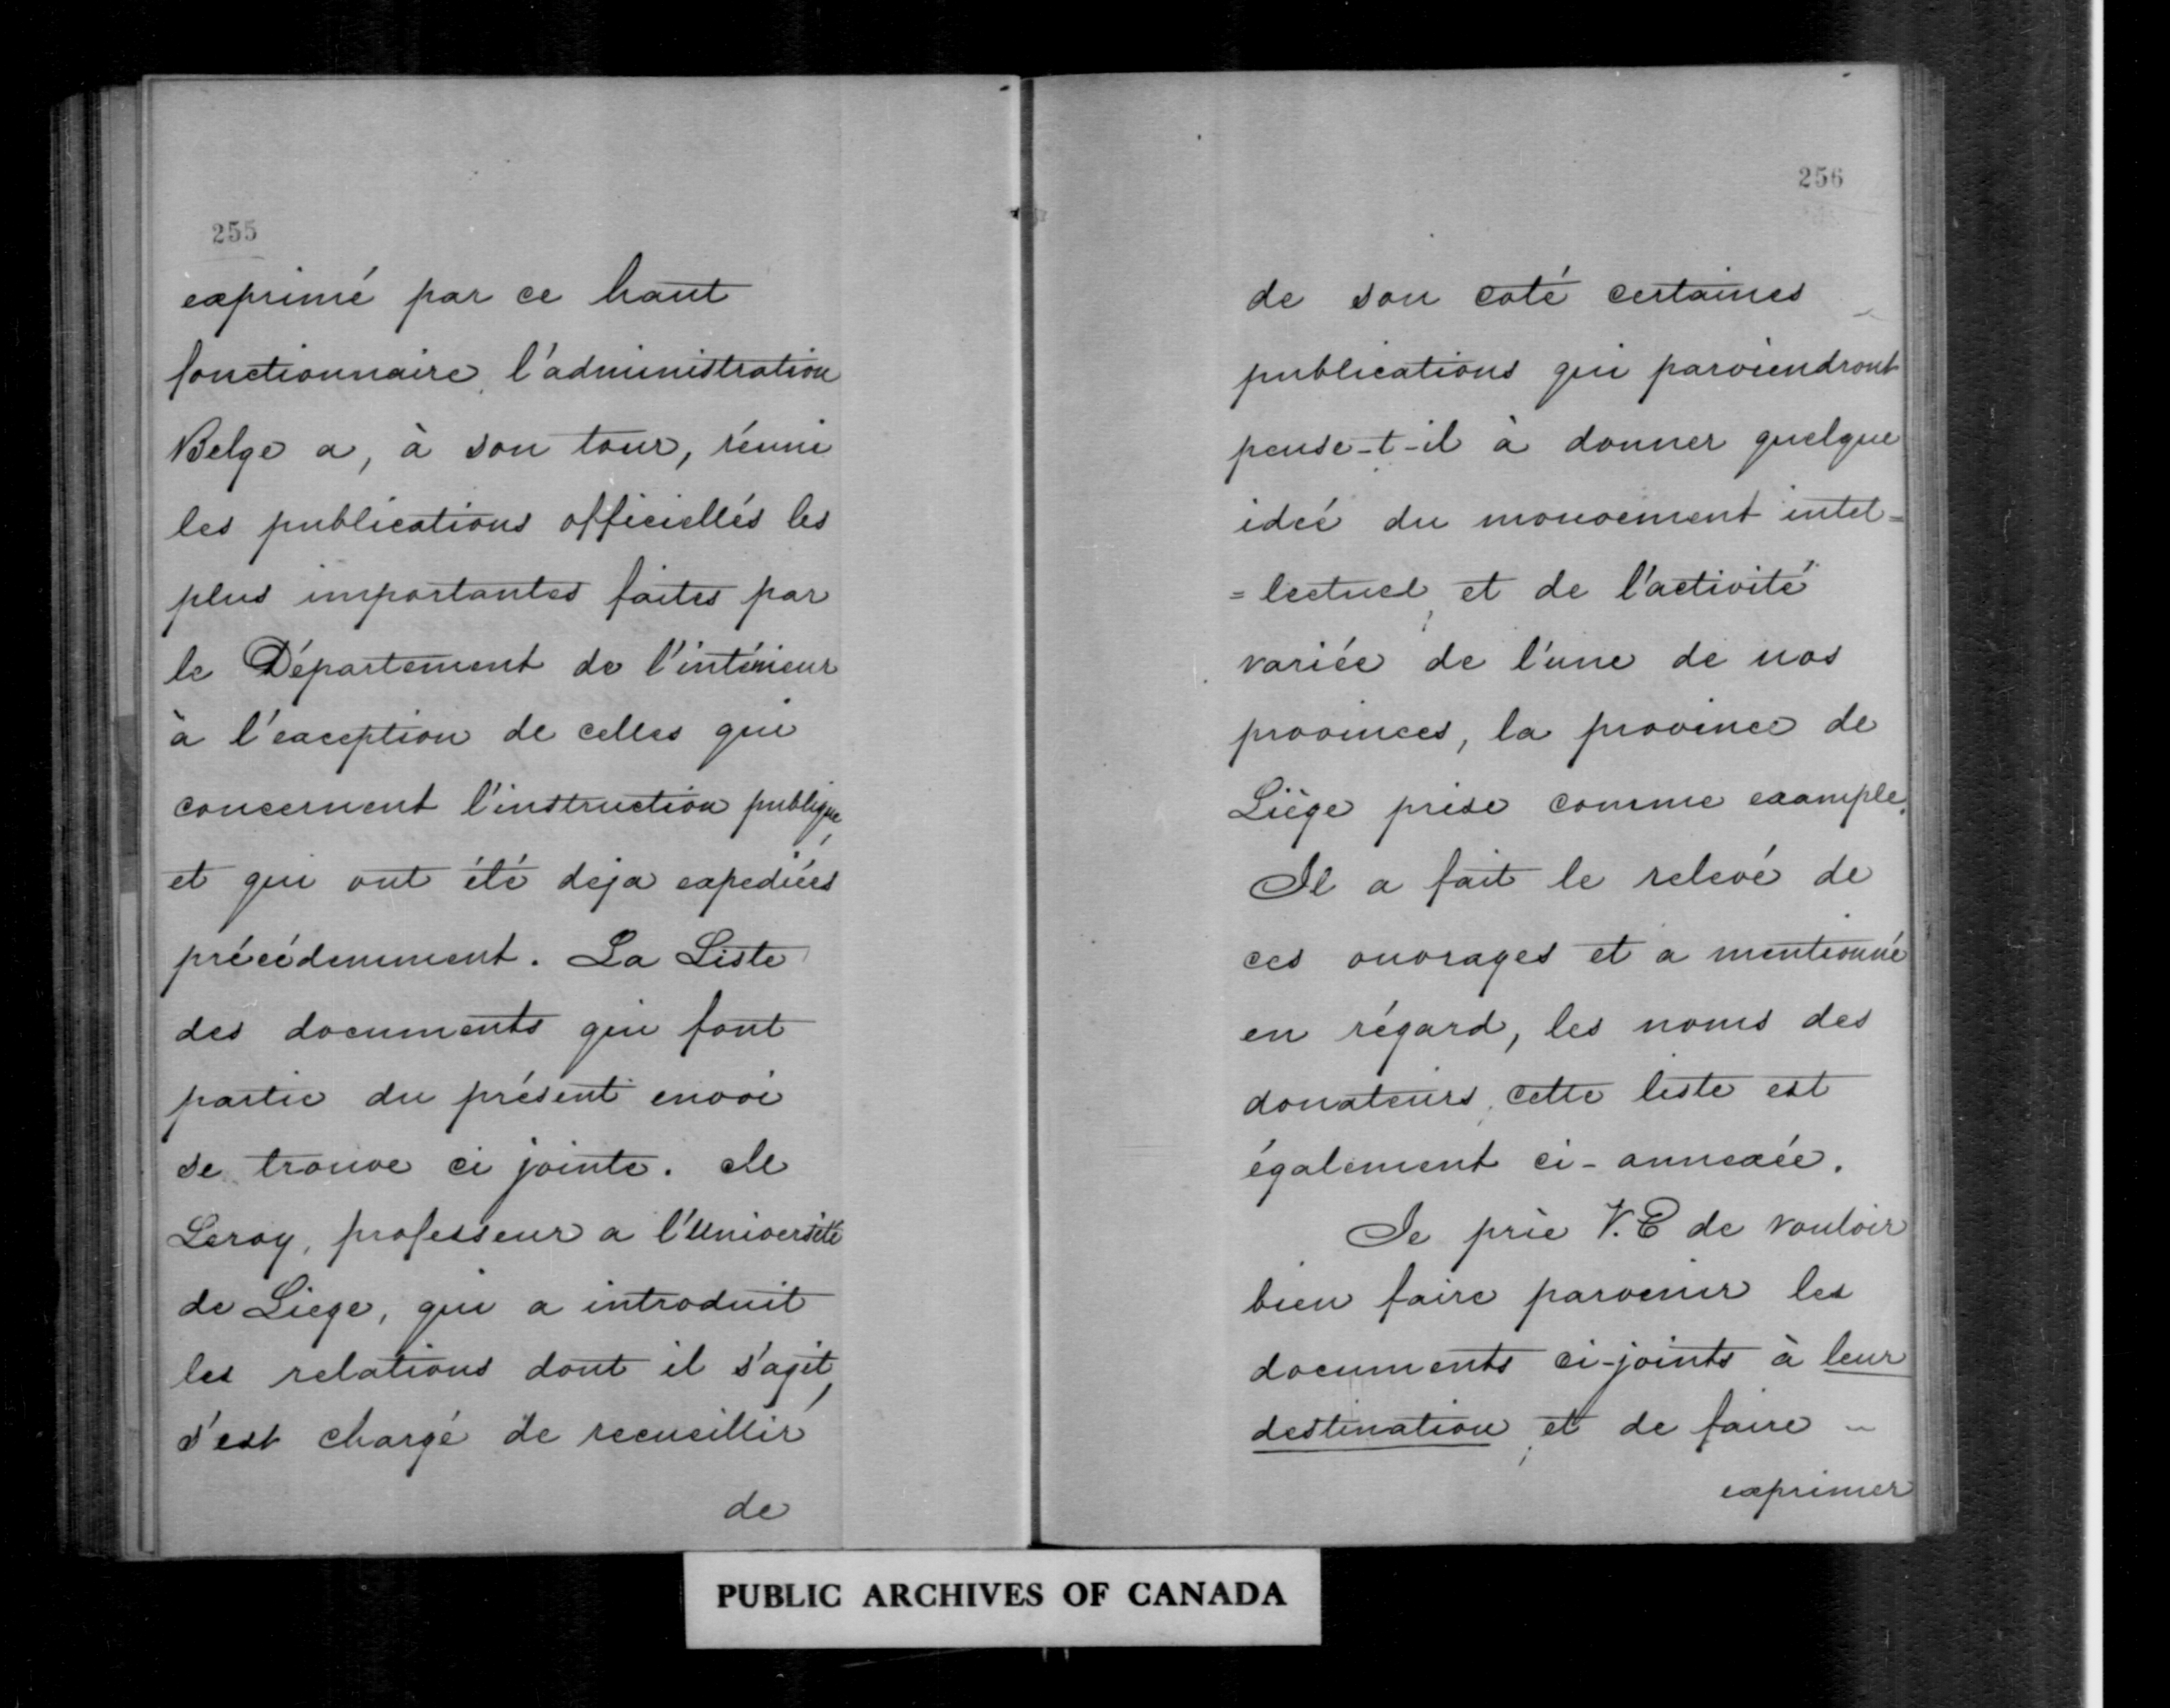 255
exprimé par ce haut
fonctionnaire, l'administration
Belge a, à son tour, réuni
les publications officiellés les
plus importantes faites par
le Département de l'intérieur
à l'exception de celles qui
concernent l'instruction publique,
et qui ont été deja expediées
précédemment. La Liste
des documents qui font
partie du présent envoi
se trouve ci jointe. M
Leroy, professeur a l'Université
de Liege, qui a introduit
les relations dont il s'agit,
s'est chargé de recueillir
de
256
de son coté certaines
publications qui parviendront
pense-t-il à donner quelque
idée du mouvement intel=
=lectuel, et de l'activité
variée de l'une de nos
provinces, la province de
Liège prise comme example.
Il a fait le relevé de
ces ouvrages et a mentionné
en régard, les noms des
donateurs, cette liste est
également ci-annexée.
Je prie V.E de vouloir
bien faire parvenir les
documents ci-joints à leur
destination, et de faire -
exprimer
PUBLIC ARCHIVES OF CANADA